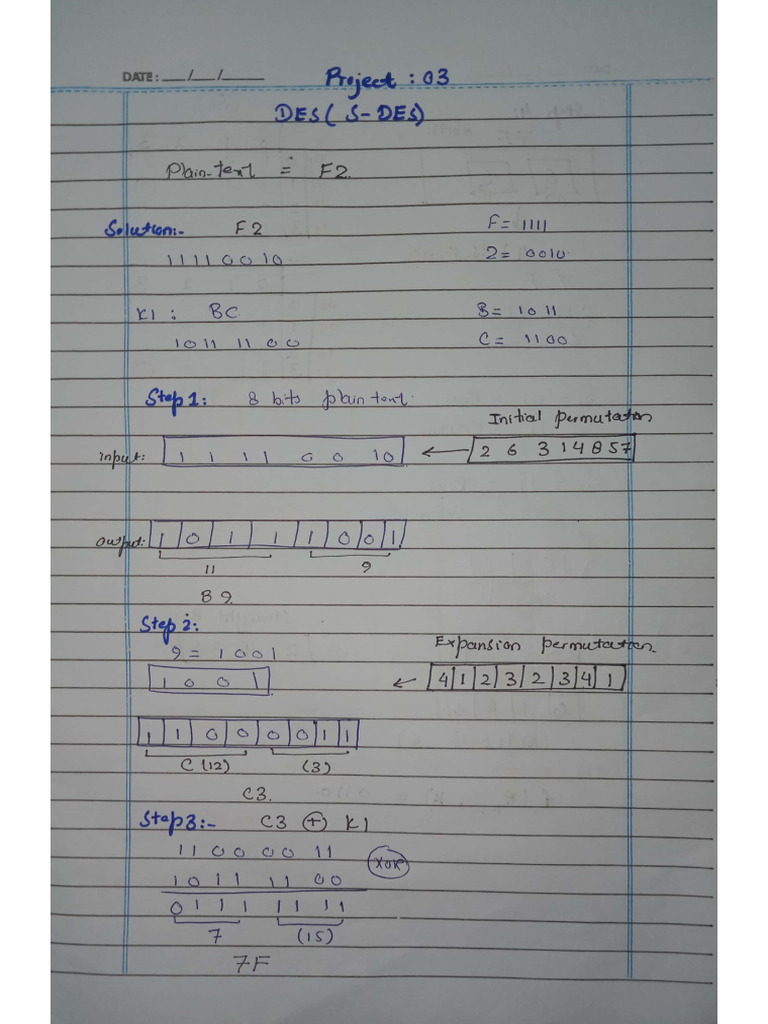 DATE: __/__/____
Project : 03
DES( S-DES)
Plain-text = F2
Solution:- F2 F = 1111
1111 0010 2 = 0010
K1 : BC B = 1011
1011 1100 C = 1100
Step 1: 8 bits plain text.
Initial permutation
input: 1 1 1 1 0 0 1 0 ← 2 6 3 1 4 8 5 7
output: 1 0 1 1 1 0 0 1
11 9
B 9
Step 2:
9 = 1001 Expansion permutation
1 0 0 1 ← 4 1 2 3 2 3 4 1
1 1 0 0 0 0 1 1
C (12) (3)
C3.
Step 3:- C3 ⊕ K1
11 00 00 11
1011 11 00 XOR
0111 1111
7 (15)
7F